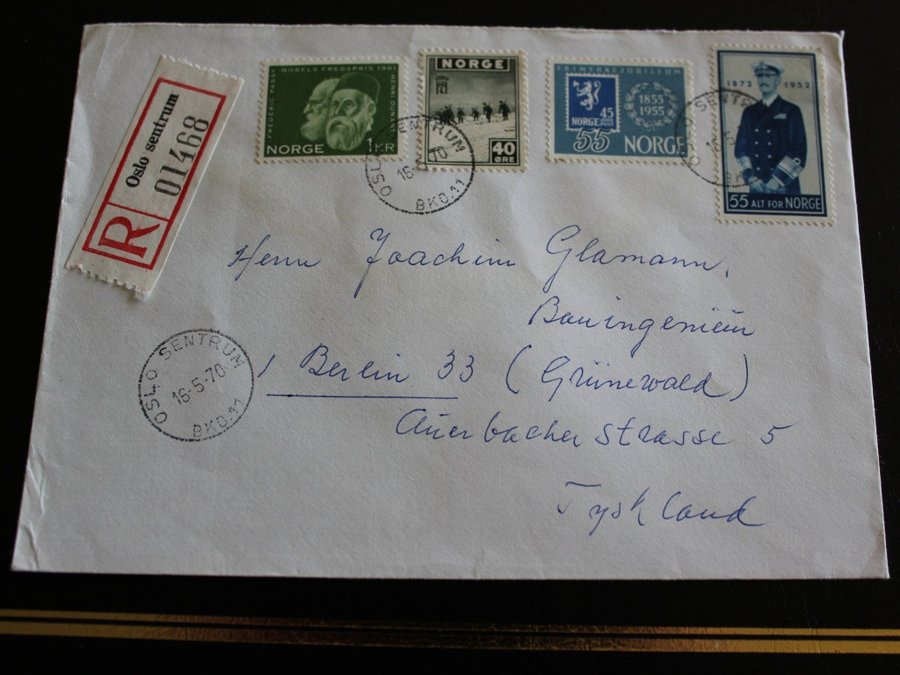 R Oslo sentrum 01468
FRÉDÉRIC PASSY NOBELS FREDSPRIS 1901 HENRI DUNANT
NORGE 1 KR
NORGE
40 ØRE
FRIMERKEJUBILEUM
NORGE 45
1855 1955
55 NORGE
1872 1952
55 ALT FOR NORGE
OSLO SENTRUM
16-5-70
BKD.11
OSLO SENTRUM
16-5
BKD
Herrn Joachim Glamann,
Bauingenieur
1 Berlin 33 (Grünewald)
Auerbacher strasse 5
Tyskland
OSLO SENTRUM
16-5-70
BKD.11